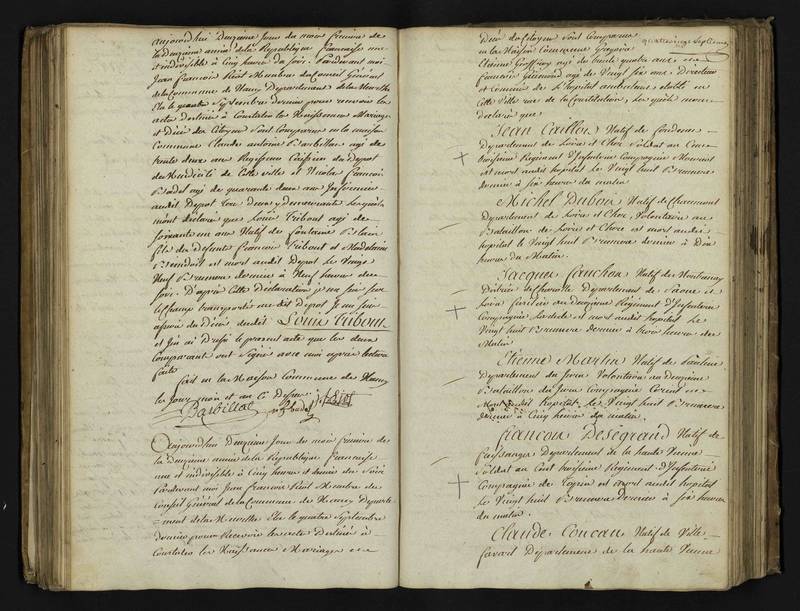 aujourdhui Douzieme jour du mois frimaire de
la Deuxieme année dela Republique francaise une
et indivisible à Cinq heures du soir. Pardevant moi
Jean francois Membre du Conseil General
dela Commune de Nancy Departement dela Meurthe
Elu le quatre Septembre dernier pour recevoir les
actes destinés à Constater les Naissances Mariages
et Décès des Citoyens Sont Comparus en la maison
Commune Claude antoine Barbillat agé de
trente deux ans Regisseur Caissier du Depot
de Mendicité de Cette ville et Nicolas francois
agé de quarante deux ans Infirmier
audit Depot tous deux y demeurants Lesquels
mont déclaré que Louis Tribout agé de
soixante un ans Natif de fontaine
fils des defunts francois Tribout et Madelaine
est mort audit Depot le Vingt
Neuf Brumaire dernier à Neuf heures du
soir. D'après Cette Déclaration je me suis sur
le Champ transporté audit Depot je me suis
assuré du Décès dudit Louis Tribout
et j'en ai Dressé le présent acte que les deux
comparants ont Signé avec moi après lecture
faite
fait en la Maison Commune de Nancy
les jour, mois et an Cy Dessus
Barbillat
Aujourdhui Douzieme jour du mois frimaire de
la Deuxieme année dela Republique francaise
une et indivisible à Cinq heures et demie du Soir
Pardevant moi Jean francois Membre du
Conseil Général dela Commune de Nancy Departe-
=ment dela Meurthe Elu le quatre Septembre
dernier pour Recevoir les actes Destinés à
Constater les Naissances Mariages et
quatrevingt Septieme
Décès des Citoyens Sont Comparus
en la Maison Commune Gregoire
Etienne Geoffroy agé de trente quatre ans et
francois agé de Vingt Six ans Directeur
et Commis de l'hopital ambulant établi en
Cette Ville rue de la Constitution, Lesquels mont
declaré que
Jean Caillou Natif de
Departement de Loire et Cher Soldat au Cent
troisieme Regiment d'Infanterie Compagnie
est mort audit hopital le Vingt huit Brumaire
dernier à Six heures du matin
Michel Dubois Natif de Chaumont
Departement de Loire et Cher, Volontaire au
Bataillon de Loire et Chere est mort audit
hopital le Vingt huit Brumaire dernier à Dix
heures du Matin.
Jacques fanchon Natif de
District de Charolle Departement de Saone et
Loire fusilier au Deuxieme Regiment d'Infanterie
Compagnie est mort audit hopital Le
Vingt huit Brumaire dernier à trois heures du
Matin
Etienne Martin Natif de
Departement du Jura Volontaire au Deuxieme
Bataillon du Jura Compagnie est
Mort audit hopital le Vingt huit Brumaire
dernier à Cinq heures du matin.
francois Desegrand Natif de
Departement de la haute Vienne
Soldat au Cent troisieme Regiment d'Infanterie
Compagnie de est mort audit hopital
le Vingt huit Brumaire Dernier à Six heures
du matin.
Claude Natif de Ville
favart Departement de la haute Vienne